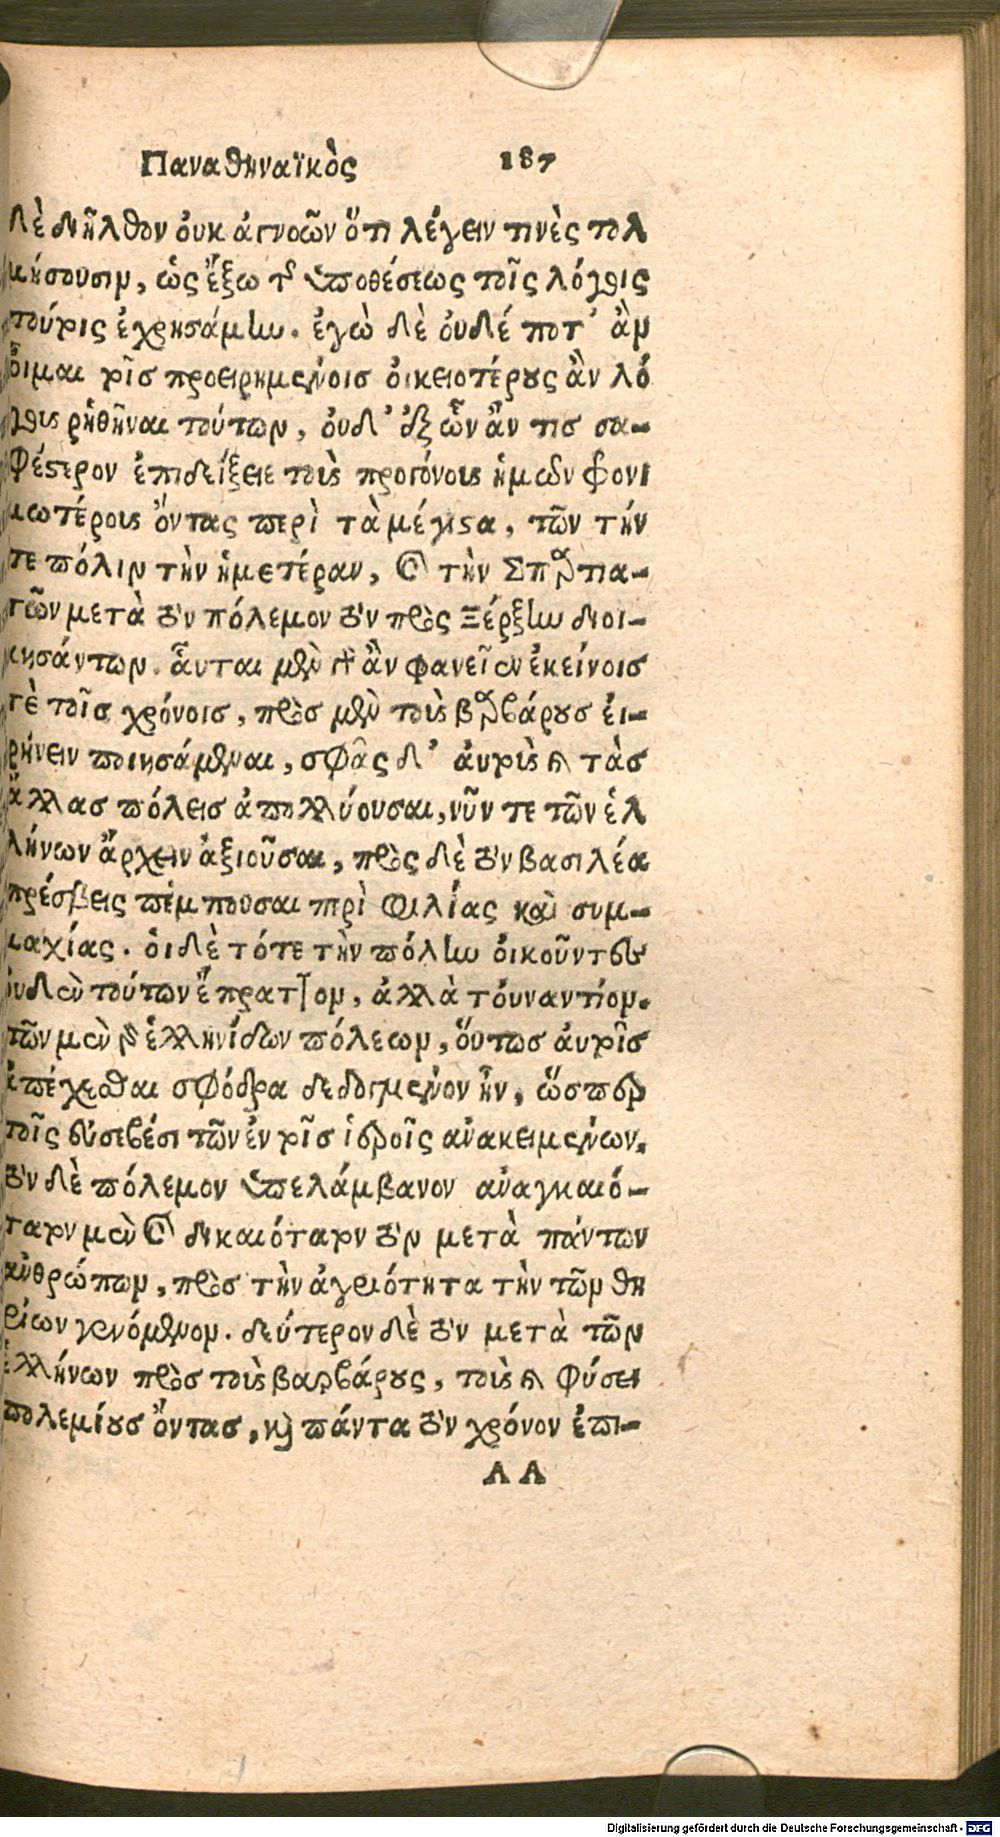 Παναθηναϊκὸς 187
δὲ διῆλθον ὀυκ ἀγνοῶν ὅτι λέγειν τινὲς τολ
μήσουσιμ, ὡς ἔξω τῆς ὑποθέσεως τοῖς λόγοις
τούτοις ἐχρησάμην. ἐγὼ δὲ ὀυδέ ποτ᾽ ἂμ
ὄιμαι τοῖσ προειρημένοισ ὀικειοτέρους ἂν λό
γους ῥηθῆναι τούτωμ, ὀυδ᾽ ἐξ ὧν ἄν τισ σα-
φέστερον ἐπιδείξειε τοὺς προγόνους ἡμῶν φρονι
μωτέρους ὄντας περὶ τὰ μέγιστα, τῶν τήν
τε πόλιμ τὴν ἡμετέραν, καὶ τὴν Σπαρτια-
τῶν μετὰ τὸν πόλεμον τὸν πρὸς Ξέρξην διοι-
κησάντωμ. ἇυται μὲν γὰρ ἂν φανεῖεν ἐκείνοισ
τὲ τοῖσ χρόνοισ, πρὸσ μὲν τοὺς βαρβάρουσ ἐι-
ρήνειν ποιησάμεναι, σφᾶς δ᾽ ἀυτοὺς καὶ τὰσ
ἄλλασ πόλεισ ἀπολλύουσαι, νῦν τε τῶν ἑλ
λήνων ἄρχειν ἀξιοῦσαι, πρὸς δὲ τὸν βασιλέα
πρέσβεις πέμπουσαι περὶ φιλίας καὶ συμ-
μαχίας. ὁι δὲ τότε τὴν πόλην ὀικοῦντες
ὀυδὲν τούτων ἔπραττομ, ἀλλὰ τὀυναντίομ.
τῶν μὲν γὰρ ἑλληνίδων πόλεωμ, ὅυτωσ ἀυτοῖσ
ἀπέχεσθαι σφόδρα δεδογμένον ἦν, ὥσπερ
τοῖς ἐυσεβέσι τῶν ἐν τοῖσ ἱεροῖς ἀνακειμένων.
τὸν δὲ πόλεμον ὑπελάμβανον ἀναγκαιό-
τατον μὲν καὶ δικαιότατον τὸμ μετὰ πάντων
ἀνθρώπωμ, πρὸσ τὴν ἀγριότητα τὴν τῶμ θη
ρίων γενόμενομ. δεύτερον δὲ τὸν μετὰ τῶμ
ἑλλήνων πρὸσ τοὺς βαρβάρους, τοὺς καὶ φύσει
πολεμίουσ ὄντασ, καὶ πάντα τὸν χρόνον ἐπι-
AA
Digitalisierung gefördert durch die Deutsche Forschungsgemeinschaft - DFG